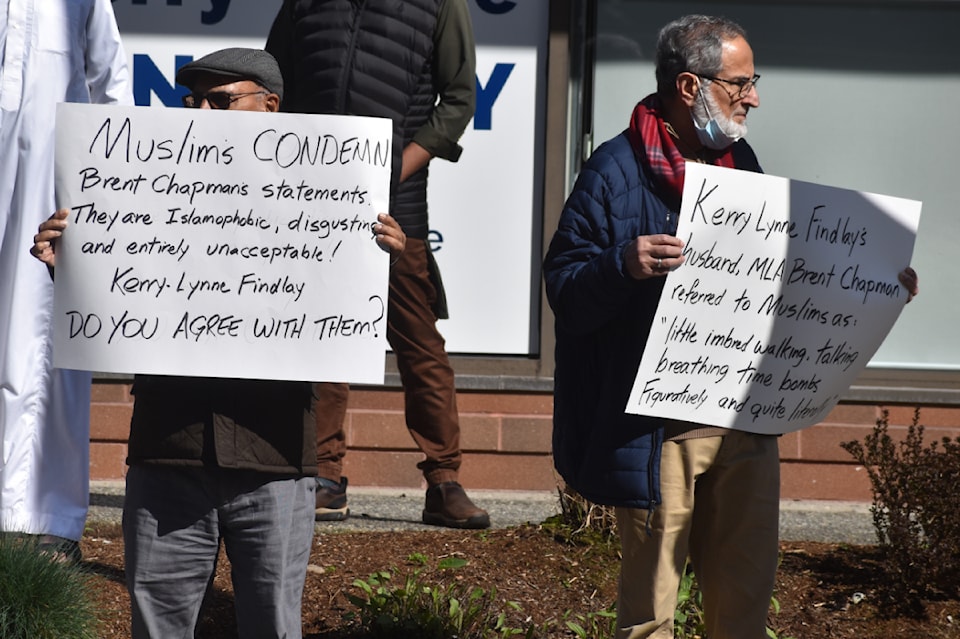 Muslim's CONDEMN
Brent Chapman's statements.
They are Islamophobic, disgusting
and entirely unacceptable!
Kerry-Lynne Findlay
DO YOU AGREE WITH THEM?
Kerry Lynne Findlay's
husband, MLA Brent Chapman
referred to Muslims as:
"little imbred walking, talking
breathing time bombs
Figuratively and quite